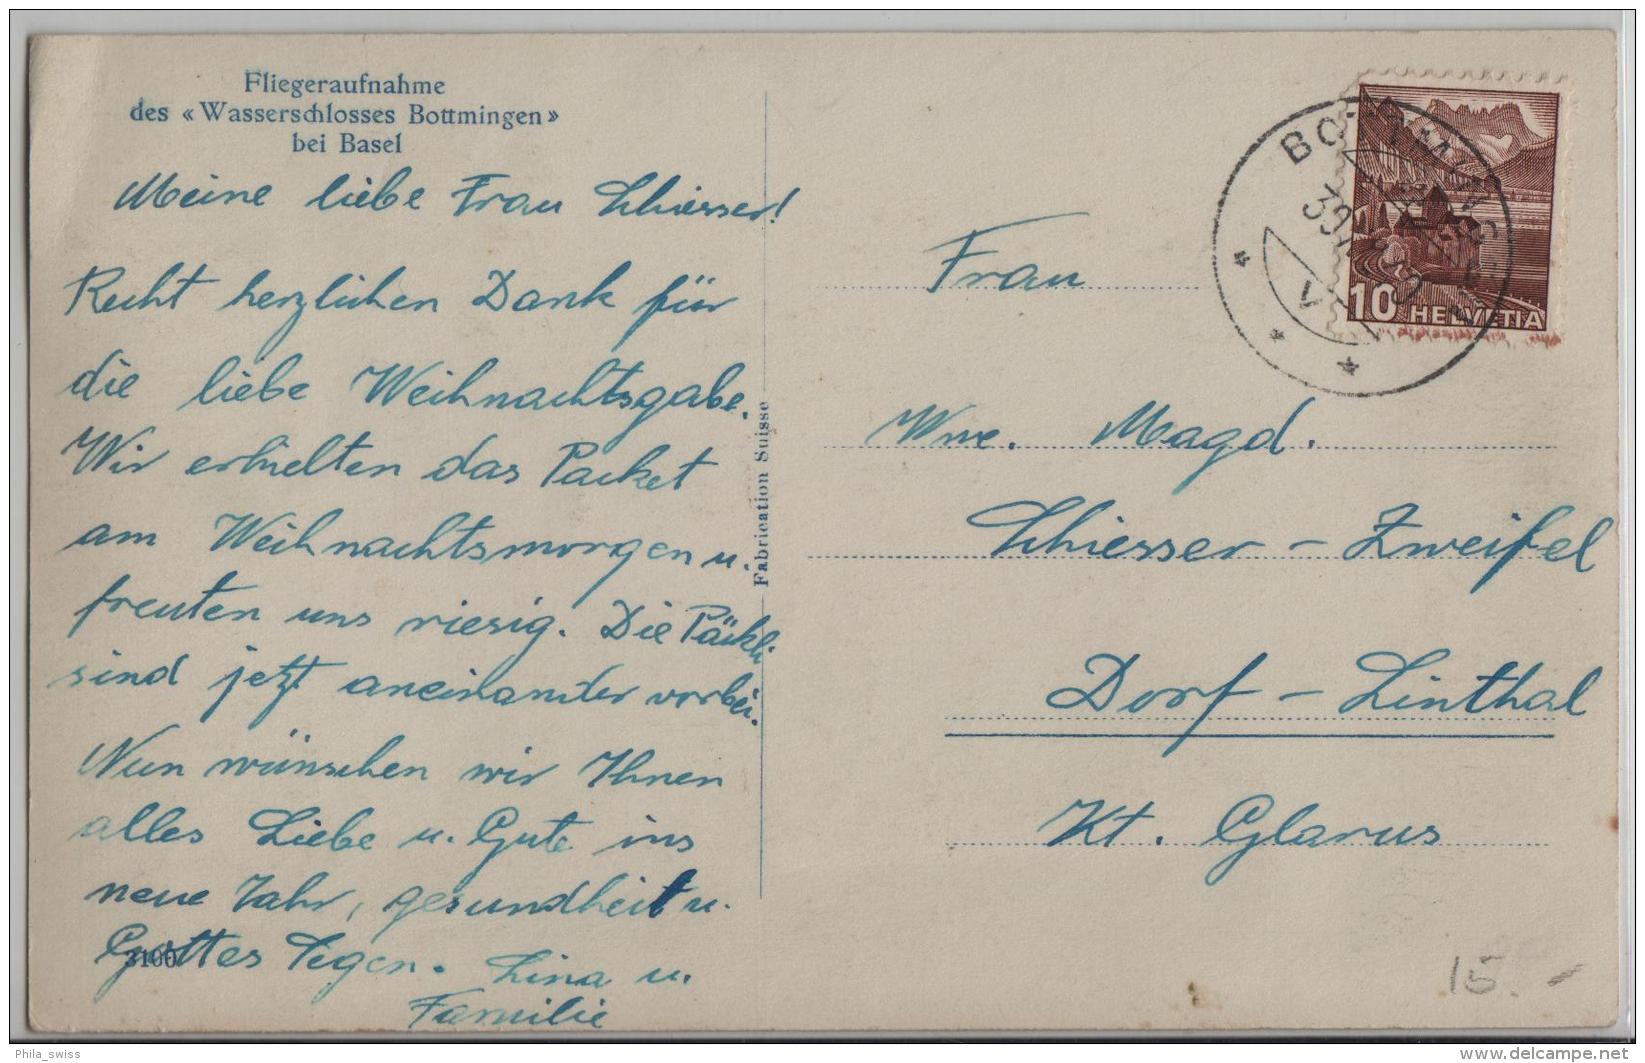 Fliegeraufnahme
des «Wasserschlosses Bottmingen»
bei Basel
Meine liebe Frau Schiesser!
Recht herzlichen Dank für
die liebe Weihnachtsgabe.
Wir erhielten das Packet
am Weihnachtsmorgen u.
freuten uns riesig. Die Päckli
sind jetzt aneinander vorbei.
Nun wünschen wir Ihnen
alles Liebe u. Gute ins
neue Jahr, gesundheit u.
Gottes Segen. Lina u.
Familie
3160
Fabrication Suisse
BOTTMINGEN
10 HELVETIA
Frau
Wwe. Magd.
Schiesser-Zweifel
Dorf-Linthal
Kt. Glarus
15.-
Phila_swiss
delcampe.net